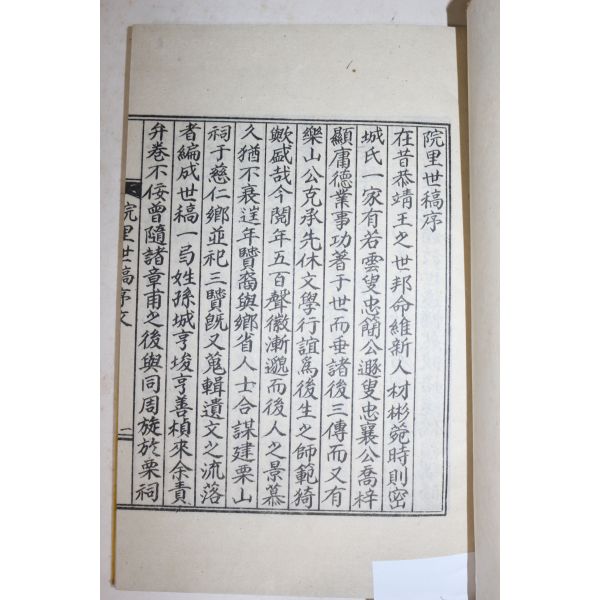 院里世稿序
在昔恭靖王之世邦命維新人材彬菀時則密
城氏一家有若雲叟忠簡公遯叟忠襄公喬梓
顯庸德業事功著于世而垂諸後三傳而又有
樂山公克承先休文學行誼爲後生之師範猗
歟盛哉今閱年五百聲徽漸邈而後人之景慕
久猶不衰逞年賢裔與鄉省人士合謀建栗山
祠于慈仁鄉並祀三賢旣又蒐輯遺文之流落
者編成世稿一局姓孫城亨埈亨善楨來余責
弁卷不佞曾隨諸章甫之後與同周旋於栗祠
院里世稿序文
一